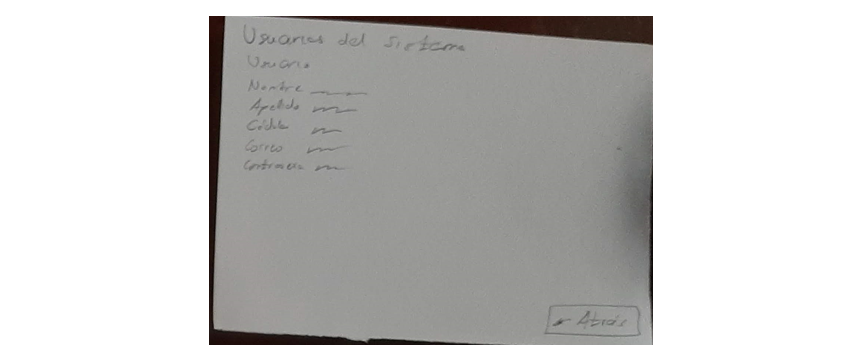 Usuarios del Sistema
Usuario
Nombre
Apellido
Cédula
Correo
Contraseña
← Atrás